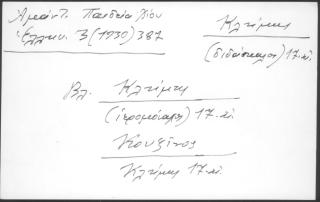 Ἀμάντ. Παιδεία Χίου
Ἑλλην. 3 (1930) 387
Κλήμης
(διδάσκαλος) 17. αἰ.
Βλ. Κλήμης
(ἱερομόναχος) 17. αἰ.
Κουξῖνος
Κλήμης 17. αἰ.